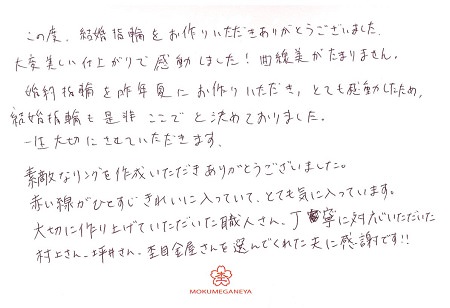 この度、結婚指輪をお作りいただきありがとうございました。
大変美しい仕上がりで感動しました！曲線美がたまりません。
婚約指輪を昨年夏にお作りいただき、とても感動したため、
結婚指輪も是非ここでと決めておりました。
一生大切にさせていただきます。
素敵なリングを作成いただきありがとうございました。
赤い線がひとすじきれいに入っていて、とても気に入っています。
大切に作り上げていただいた職人さん、丁寧に対応いただいた
村上さん、坪井さん、杢目金屋さんを選んでくれた夫に感謝です!!
MOKUMEGANEYA